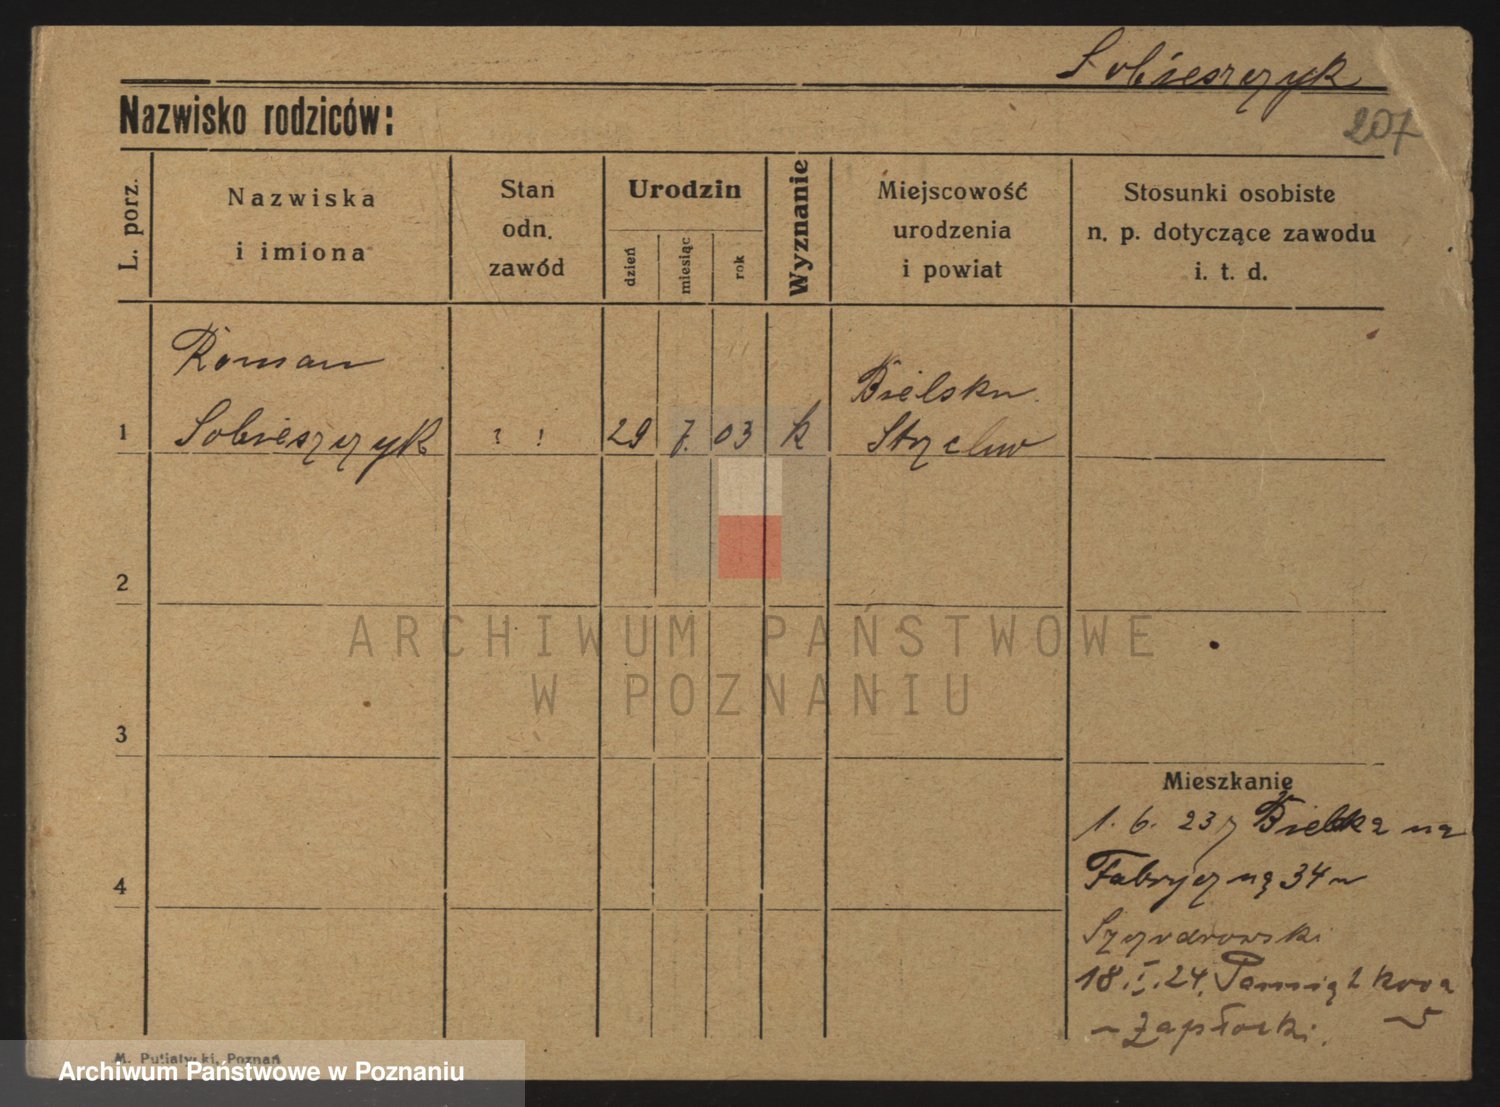 Sobieszczyk
207
Nazwisko rodziców:
L. porz.
Nazwiska
i imiona
Stan
odn.
zawód
Urodzin
dzień
miesiąc
rok
Wyznanie
Miejscowość
urodzenia
i powiat
Stosunki osobiste
n. p. dotyczące zawodu
i. t. d.
1
Roman
Sobieszczyk
? !
29
7.
03
k
Bielsku
2
ARCHIWUM PAŃSTWOWE
W POZNANIU
3
Mieszkanie
1. 6. 23 z Bielska na
4
Fabryczną 34 u
18.I.24. Pamiątkowa
M. Putiatycki, Poznań
Archiwum Państwowe w Poznaniu